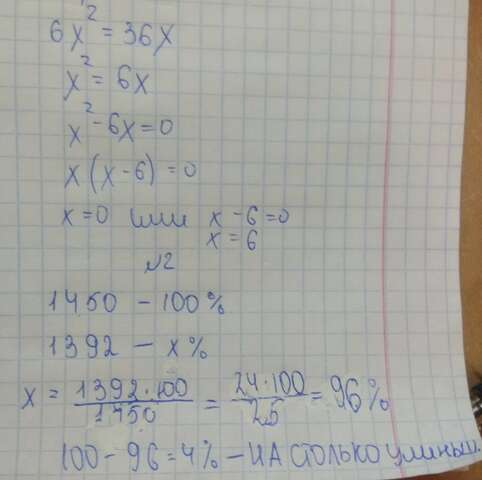 6x² = 36x
x² = 6x
x² - 6x = 0
x(x - 6) = 0
x = 0 или x - 6 = 0
x = 6
№2
1450 - 100%
1392 - x%
x = 1392·100/1450 = 24·100/25 = 96%
100 - 96 = 4% - НА СТОЛЬКО уменьш.